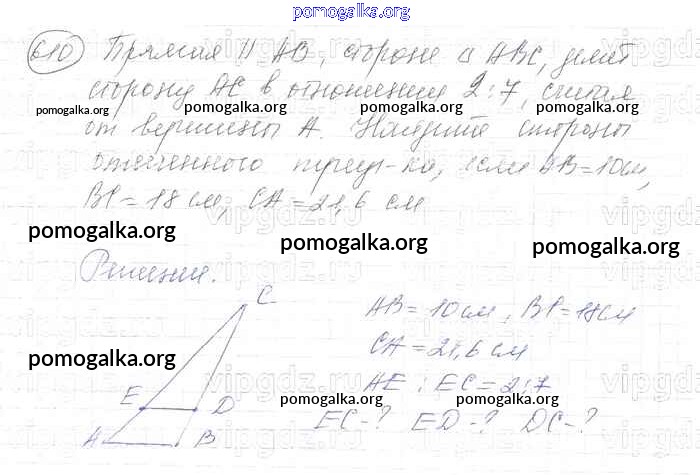 pomogalka.org
610 Прямая || AB, стороне △ ABC, делит
сторону AC в отношении 2:7, считая
pomogalka.org pomogalka.org pomogalka.org pomogalka.org
от вершины A. Найдите стороны
отсеченного треуг-ка, если AB=10см,
BC=18см, CA=21,6 см
vipgdz.ru vipgdz.ru vipgdz.ru
pomogalka.org pomogalka.org pomogalka.org
Решение.
C
AB=10см, BC=18см
CA=21,6 см
pomogalka.org
vipgdz.ru vipgdz.ru vipgdz.ru
AE : EC=2:7
pomogalka.org pomogalka.org
E D
EC-? ED-? DC-?
A B